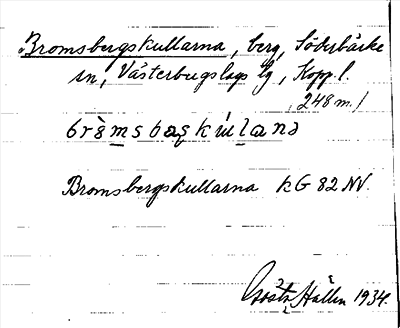 Bromsbergskullarna, berg, Söderbärke
sn, Västerbergslags tg, Kopp. l.
(248 m.)
Bromsbergskullarna kG 82 NV.
Hállen 1934.